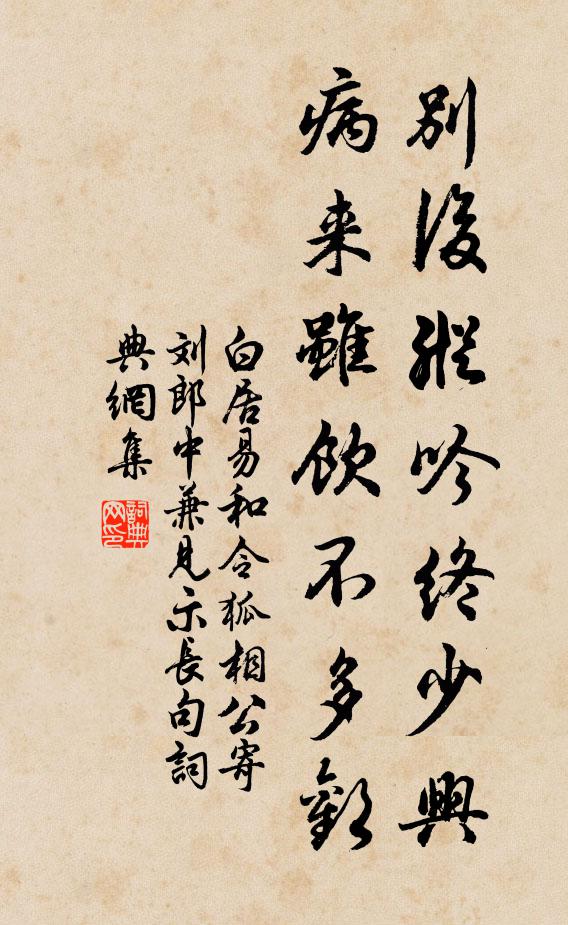 別後縱吟終少興
病来雖飲不多歡
白居易和令狐相公寄
刘郎中兼見示長句詞
典網集
詞典网印